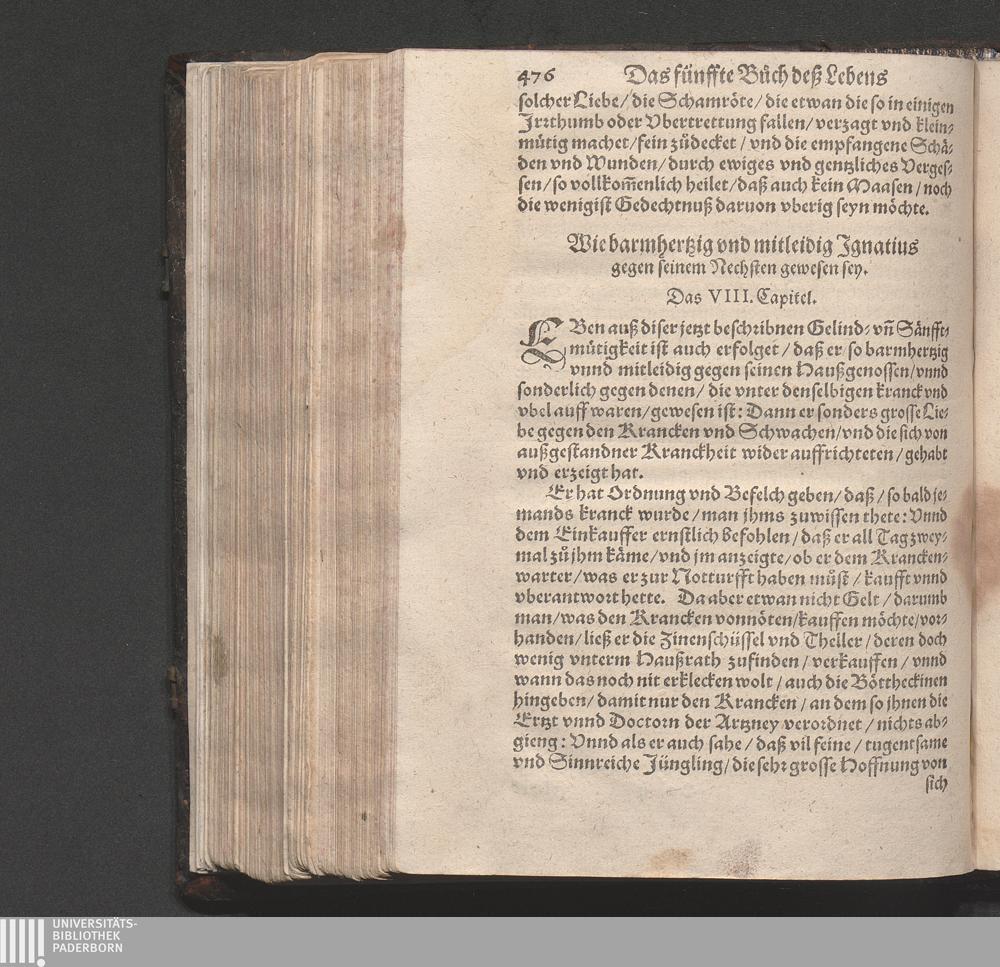 476 Das fünffte Bůch deß Lebens
solcher Liebe/ die Schamröte/ die etwan die so in einigen
Irrthumb oder Vbertrettung fallen/ verzagt vnd klein-
mütig machet/ fein zůdecket/ vnd die empfangene Schä-
den vnd Wunden/ durch ewiges vnd gentzliches Verges-
sen/ so vollkom̃enlich heilet/ daß auch kein Maasen/ noch
die wenigist Gedechtnuß daruon vberig seyn möchte.
Wie barmhertzig vnd mitleidig Ignatius
gegen seinem Nechsten gewesen sey.
Das VIII. Capitel.
EBen auß diser jetzt beschribnen Gelind- vñ Sänfft-
mütigkeit ist auch erfolget/ daß er so barmhertzig
vnnd mitleidig gegen seinen Haußgenossen/ vnnd
sonderlich gegen denen/ die vnter denselbigen kranck vnd
vbel auff waren/ gewesen ist: Dann er sonders grosse Lie-
be gegen den Krancken vnd Schwachen/ vnd die sich von
außgestandner Kranckheit wider auffrichteten/ gehabt
vnd erzeigt hat.
Er hat Ordnung vnd Befelch geben/ daß/ so bald je-
mands kranck wurde/ man jhms zuwissen thete: Vnnd
dem Einkauffer ernstlich befohlen/ daß er all Tag zwey-
mal zů jhm käme/ vnd jm anzeigte/ ob er dem Krancken-
warter/ was er zur Notturfft haben můst/ kaufft vnnd
vberantwort hette. Da aber etwan nicht Gelt/ darumb
man/ was den Krancken vonnöten/ kauffen möchte/ vor-
handen/ ließ er die Zinenschüssel vnd Theller/ deren doch
wenig vnterm Haußrath zufinden/ verkauffen/ vnnd
wann das noch nit erklecken wolt/ auch die Böttheckinen
hingeben/ damit nur den Krancken/ an dem so jhnen die
Ertzt vnnd Doctorn der Artzney verordnet/ nichts ab-
gieng: Vnnd als er auch sahe/ daß vil feine/ tugentsame
vnd Sinnreiche Jüngling/ die sehr grosse Hoffnung von
sich
UNIVERSITÄTS-
BIBLIOTHEK
PADERBORN